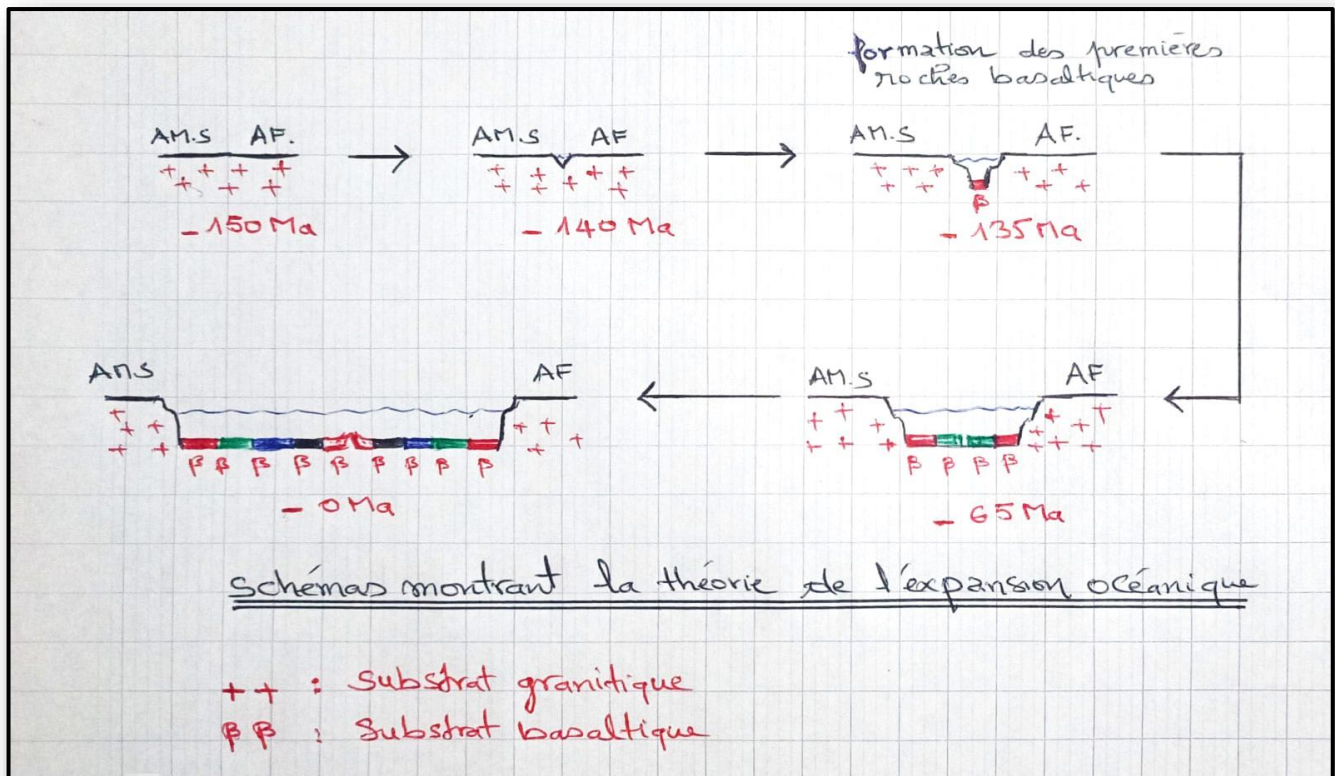 formation des premières
roches basaltiques
AM.S AF.
AM.S AF
AM.S AF.
β
- 150 Ma
- 140 Ma
- 135 Ma
AMS AF
AM.S AF
β β β β β β β β β
β β β β
- 0 Ma
- 65 Ma
schémas montrant la théorie de l'expansion océanique
+ + : Substrat granitique
β β : Substrat basaltique